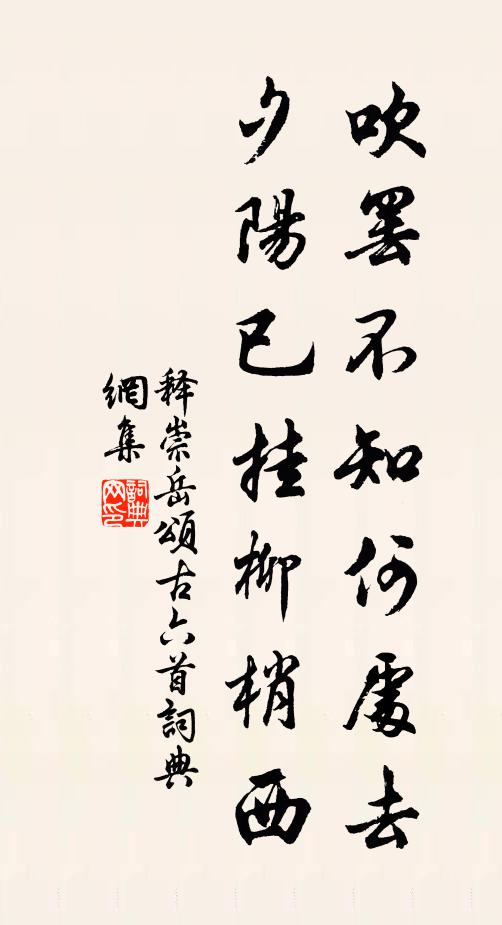 吹罢不知何處去
夕陽已挂柳梢西
释崇岳頌古六首詞典
網集
詞典
网印